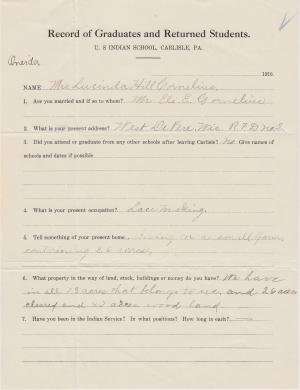 Record of Graduates and Returned Students.
U. S INDIAN SCHOOL, CARLISLE, PA.
Oneida
1910.
NAME Mrs Lucinda Hill Cornelius
1. Are you married and if so to whom? Mr Eli E. Cornelius
2. What is your present address? West De Pere, Wis R.F.D no 2.
3. Did you attend or graduate from any other schools after leaving Carlisle? No. Give names
of schools and dates if possible
4. What is your present occupation? Lace making.
5. Tell something of your present home. living on a small farm
containing 26 acres.
6. What property in the way of land, stock, buildings or money do you have? We have
in all 73 acres that belongs to us, and 26 acres
cleared and 47 acres wood land.
7. Have you been in the Indian Service? In what positions? How long in each?